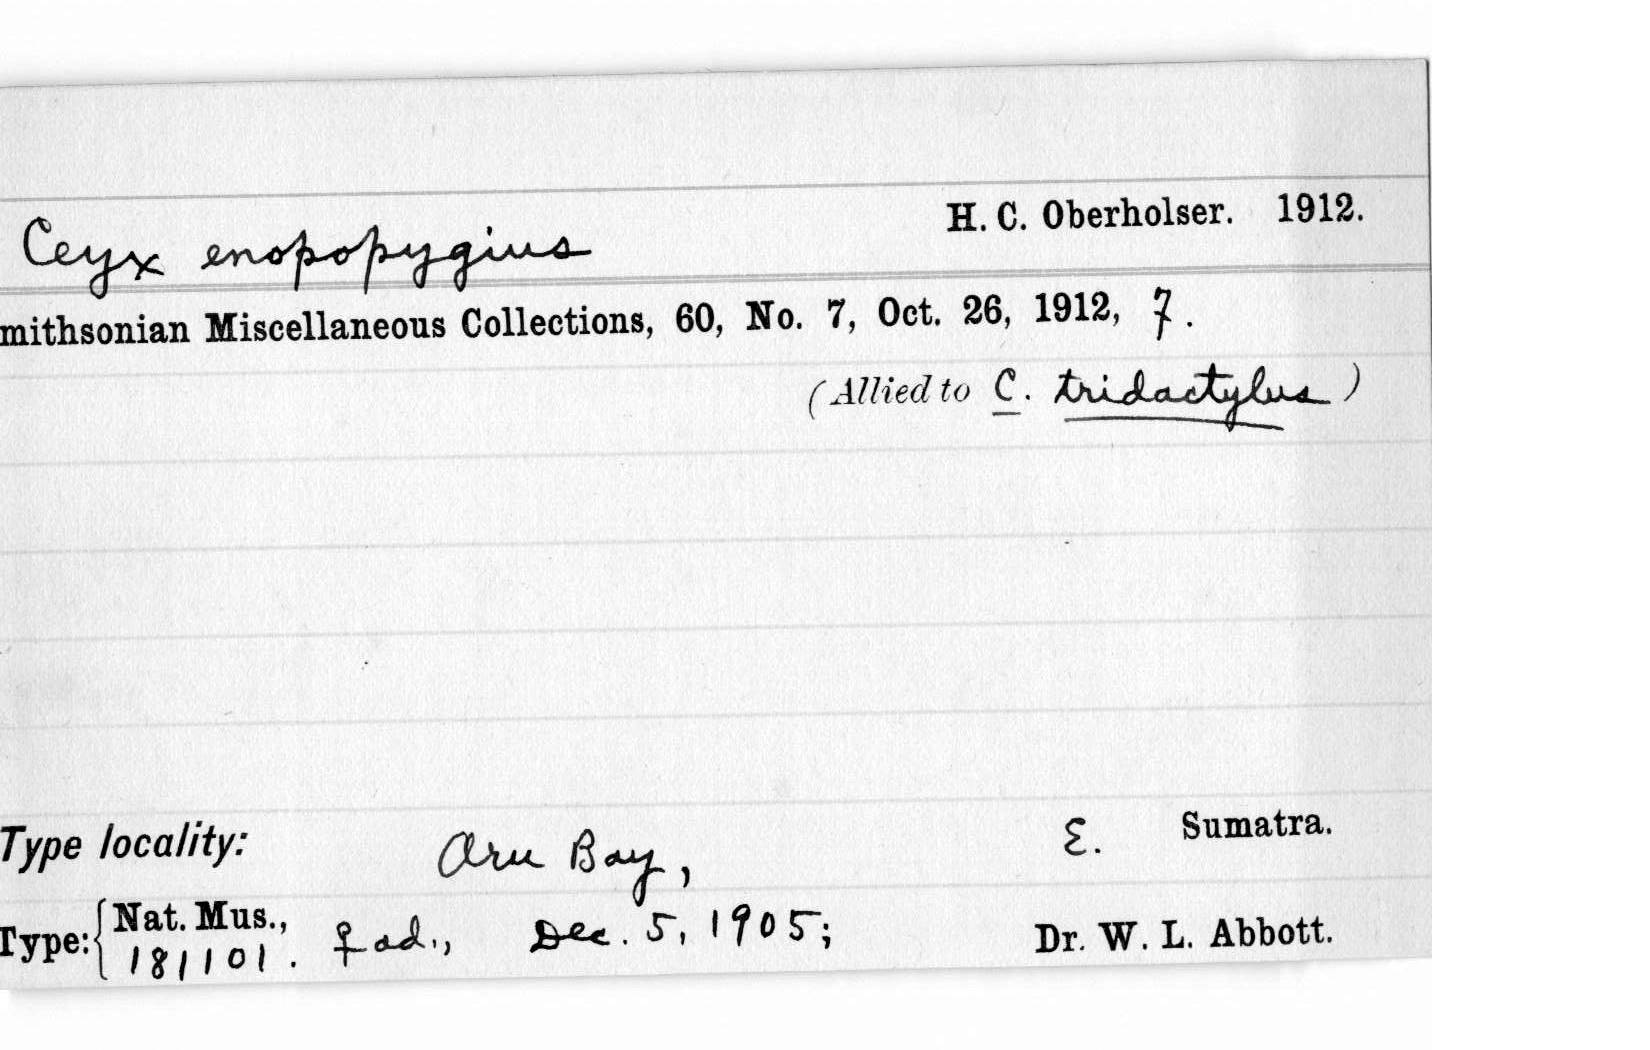 Ceyx enopopygius H. C. Oberholser. 1912.
mithsonian Miscellaneous Collections, 60, No. 7, Oct. 26, 1912, 7.
(Allied to C. tridactylus)
Type locality: Aru Bay, E. Sumatra.
Type: { Nat. Mus.,
181101. ♀ ad., Dec. 5, 1905; Dr. W. L. Abbott.